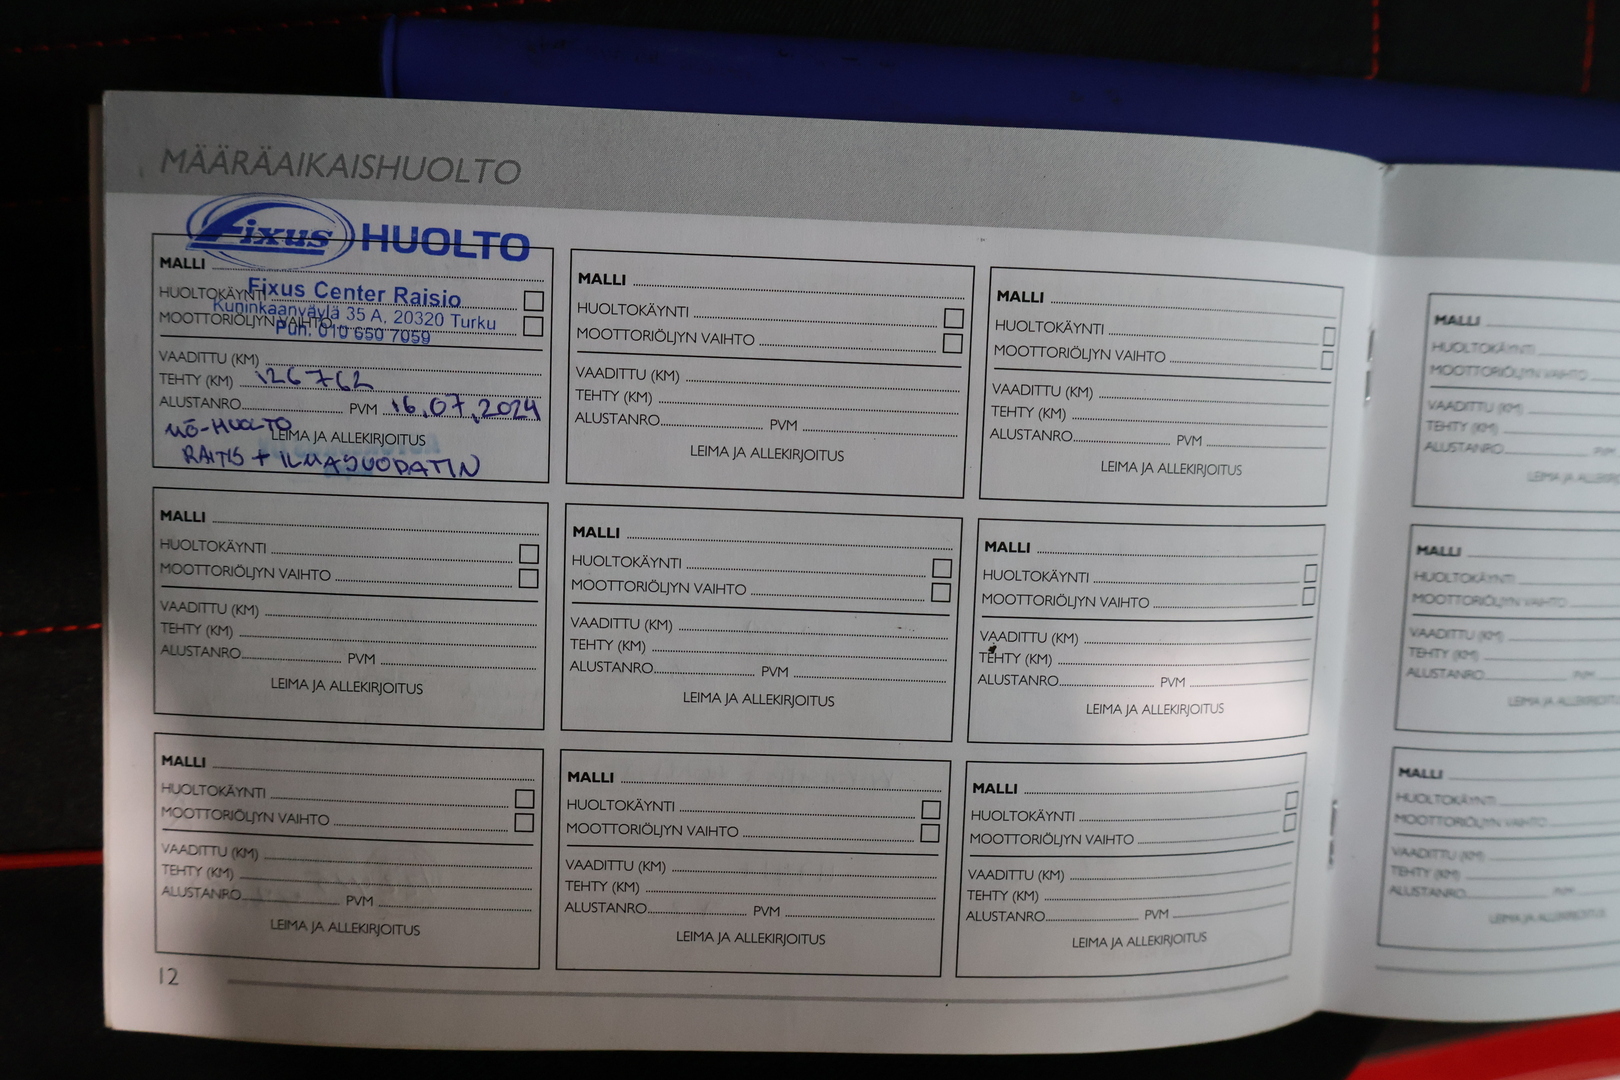 MÄÄRÄAIKAISHUOLTO
Fixus HUOLTO
MALLI
Fixus Center Raisio
HUOLTOKÄYNTI
Kuninkaanväylä 35 A, 20320 Turku
MOOTTORIÖLJYN VAIHTO
Puh. 010 650 7059
VAADITTU (KM)
TEHTY (KM) 126762
ALUSTANRO PVM 16.07.2024
MÖ-HUOLTO
LEIMA JA ALLEKIRJOITUS
RAITIS + ILMASUODATIN
MALLI
HUOLTOKÄYNTI
MOOTTORIÖLJYN VAIHTO
VAADITTU (KM)
TEHTY (KM)
ALUSTANRO PVM
LEIMA JA ALLEKIRJOITUS
MALLI
HUOLTOKÄYNTI
MOOTTORIÖLJYN VAIHTO
VAADITTU (KM)
TEHTY (KM)
ALUSTANRO PVM
LEIMA JA ALLEKIRJOITUS
MALLI
HUOLTOKÄYNTI
MOOTTORIÖLJYN VAIHTO
VAADITTU (KM)
TEHTY (KM)
ALUSTANRO PVM
LEIMA JA ALLEKIRJOITUS
MALLI
HUOLTOKÄYNTI
MOOTTORIÖLJYN VAIHTO
VAADITTU (KM)
TEHTY (KM)
ALUSTANRO PVM
LEIMA JA ALLEKIRJOITUS
MALLI
HUOLTOKÄYNTI
MOOTTORIÖLJYN VAIHTO
VAADITTU (KM)
TEHTY (KM)
ALUSTANRO PVM
LEIMA JA ALLEKIRJOITUS
MALLI
HUOLTOKÄYNTI
MOOTTORIÖLJYN VAIHTO
VAADITTU (KM)
TEHTY (KM)
ALUSTANRO PVM
LEIMA JA ALLEKIRJOITUS
MALLI
HUOLTOKÄYNTI
MOOTTORIÖLJYN VAIHTO
VAADITTU (KM)
TEHTY (KM)
ALUSTANRO PVM
LEIMA JA ALLEKIRJOITUS
MALLI
HUOLTOKÄYNTI
MOOTTORIÖLJYN VAIHTO
VAADITTU (KM)
TEHTY (KM)
ALUSTANRO PVM
LEIMA JA ALLEKIRJOITUS
12
MALLI
HUOLTOKÄYNTI
MOOTTORIÖLJYN VAIHTO
VAADITTU (KM)
TEHTY (KM)
ALUSTANRO PVM
LEIMA JA
MALLI
HUOLTOKÄYNTI
MOOTTORIÖLJYN VAIHTO
VAADITTU (KM)
TEHTY (KM)
ALUSTANRO PVM
LEIMA JA
MALLI
HUOLTOKÄYNTI
MOOTTORIÖLJYN VAIHTO
VAADITTU (KM)
TEHTY (KM)
ALUSTANRO PVM
LEIMA JA